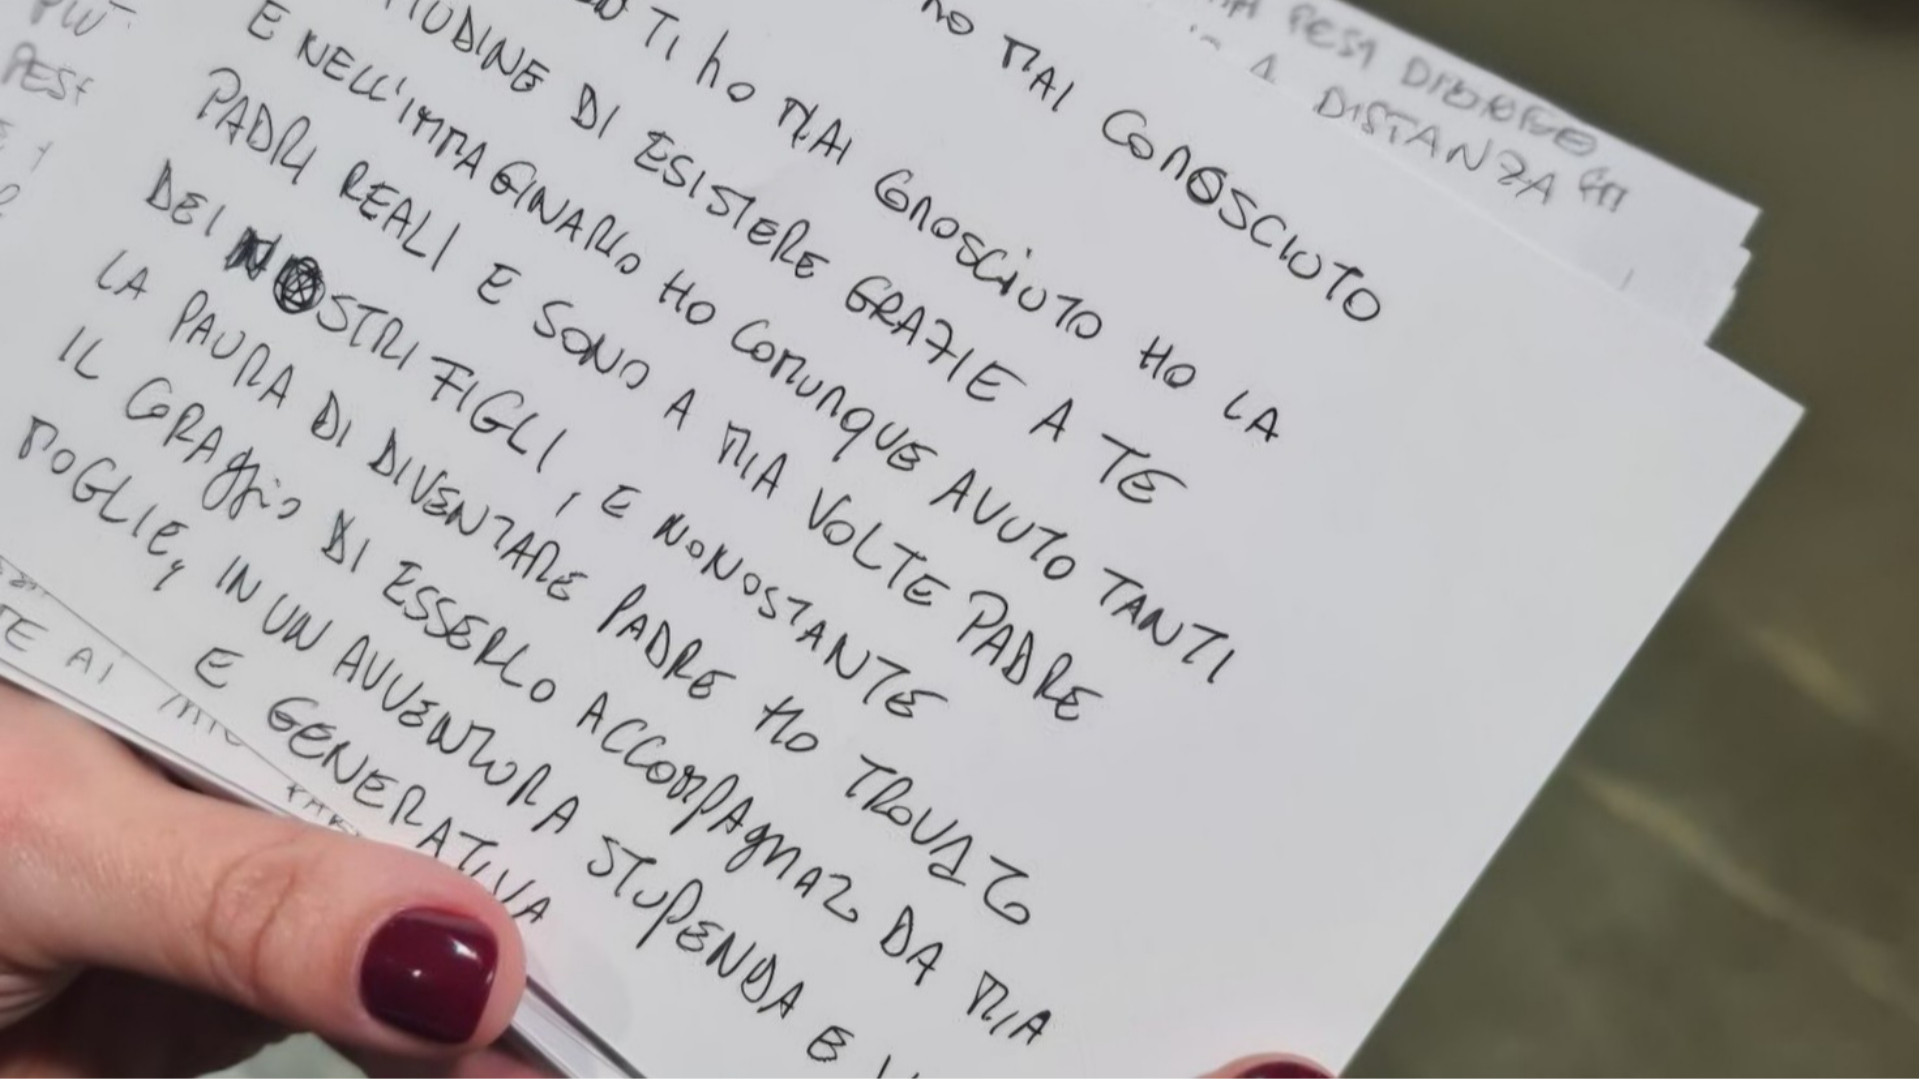 A DISTANZA
PIÙ
MAI CONOSCIUTO
TI ho MAI CONOSCIUTO HO LA
TUDINE DI ESISTERE GRAZIE A TE
E NELL'IMMAGINARIO HO COMUNQUE AVUTO TANTI
PADRI REALI E SONO A MIA VOLTE PADRE
DEI NOSTRI FIGLI, E NONOSTANTE
LA PAURA DI DIVENTARE PADRE HO TROVATO
IL CORAGGIO DI ESSERLO ACCOMPAGNAZ DA MIA
MOGLIE, IN UN AVVENTURA STUPENDA E
E GENERATIVA
TE AI